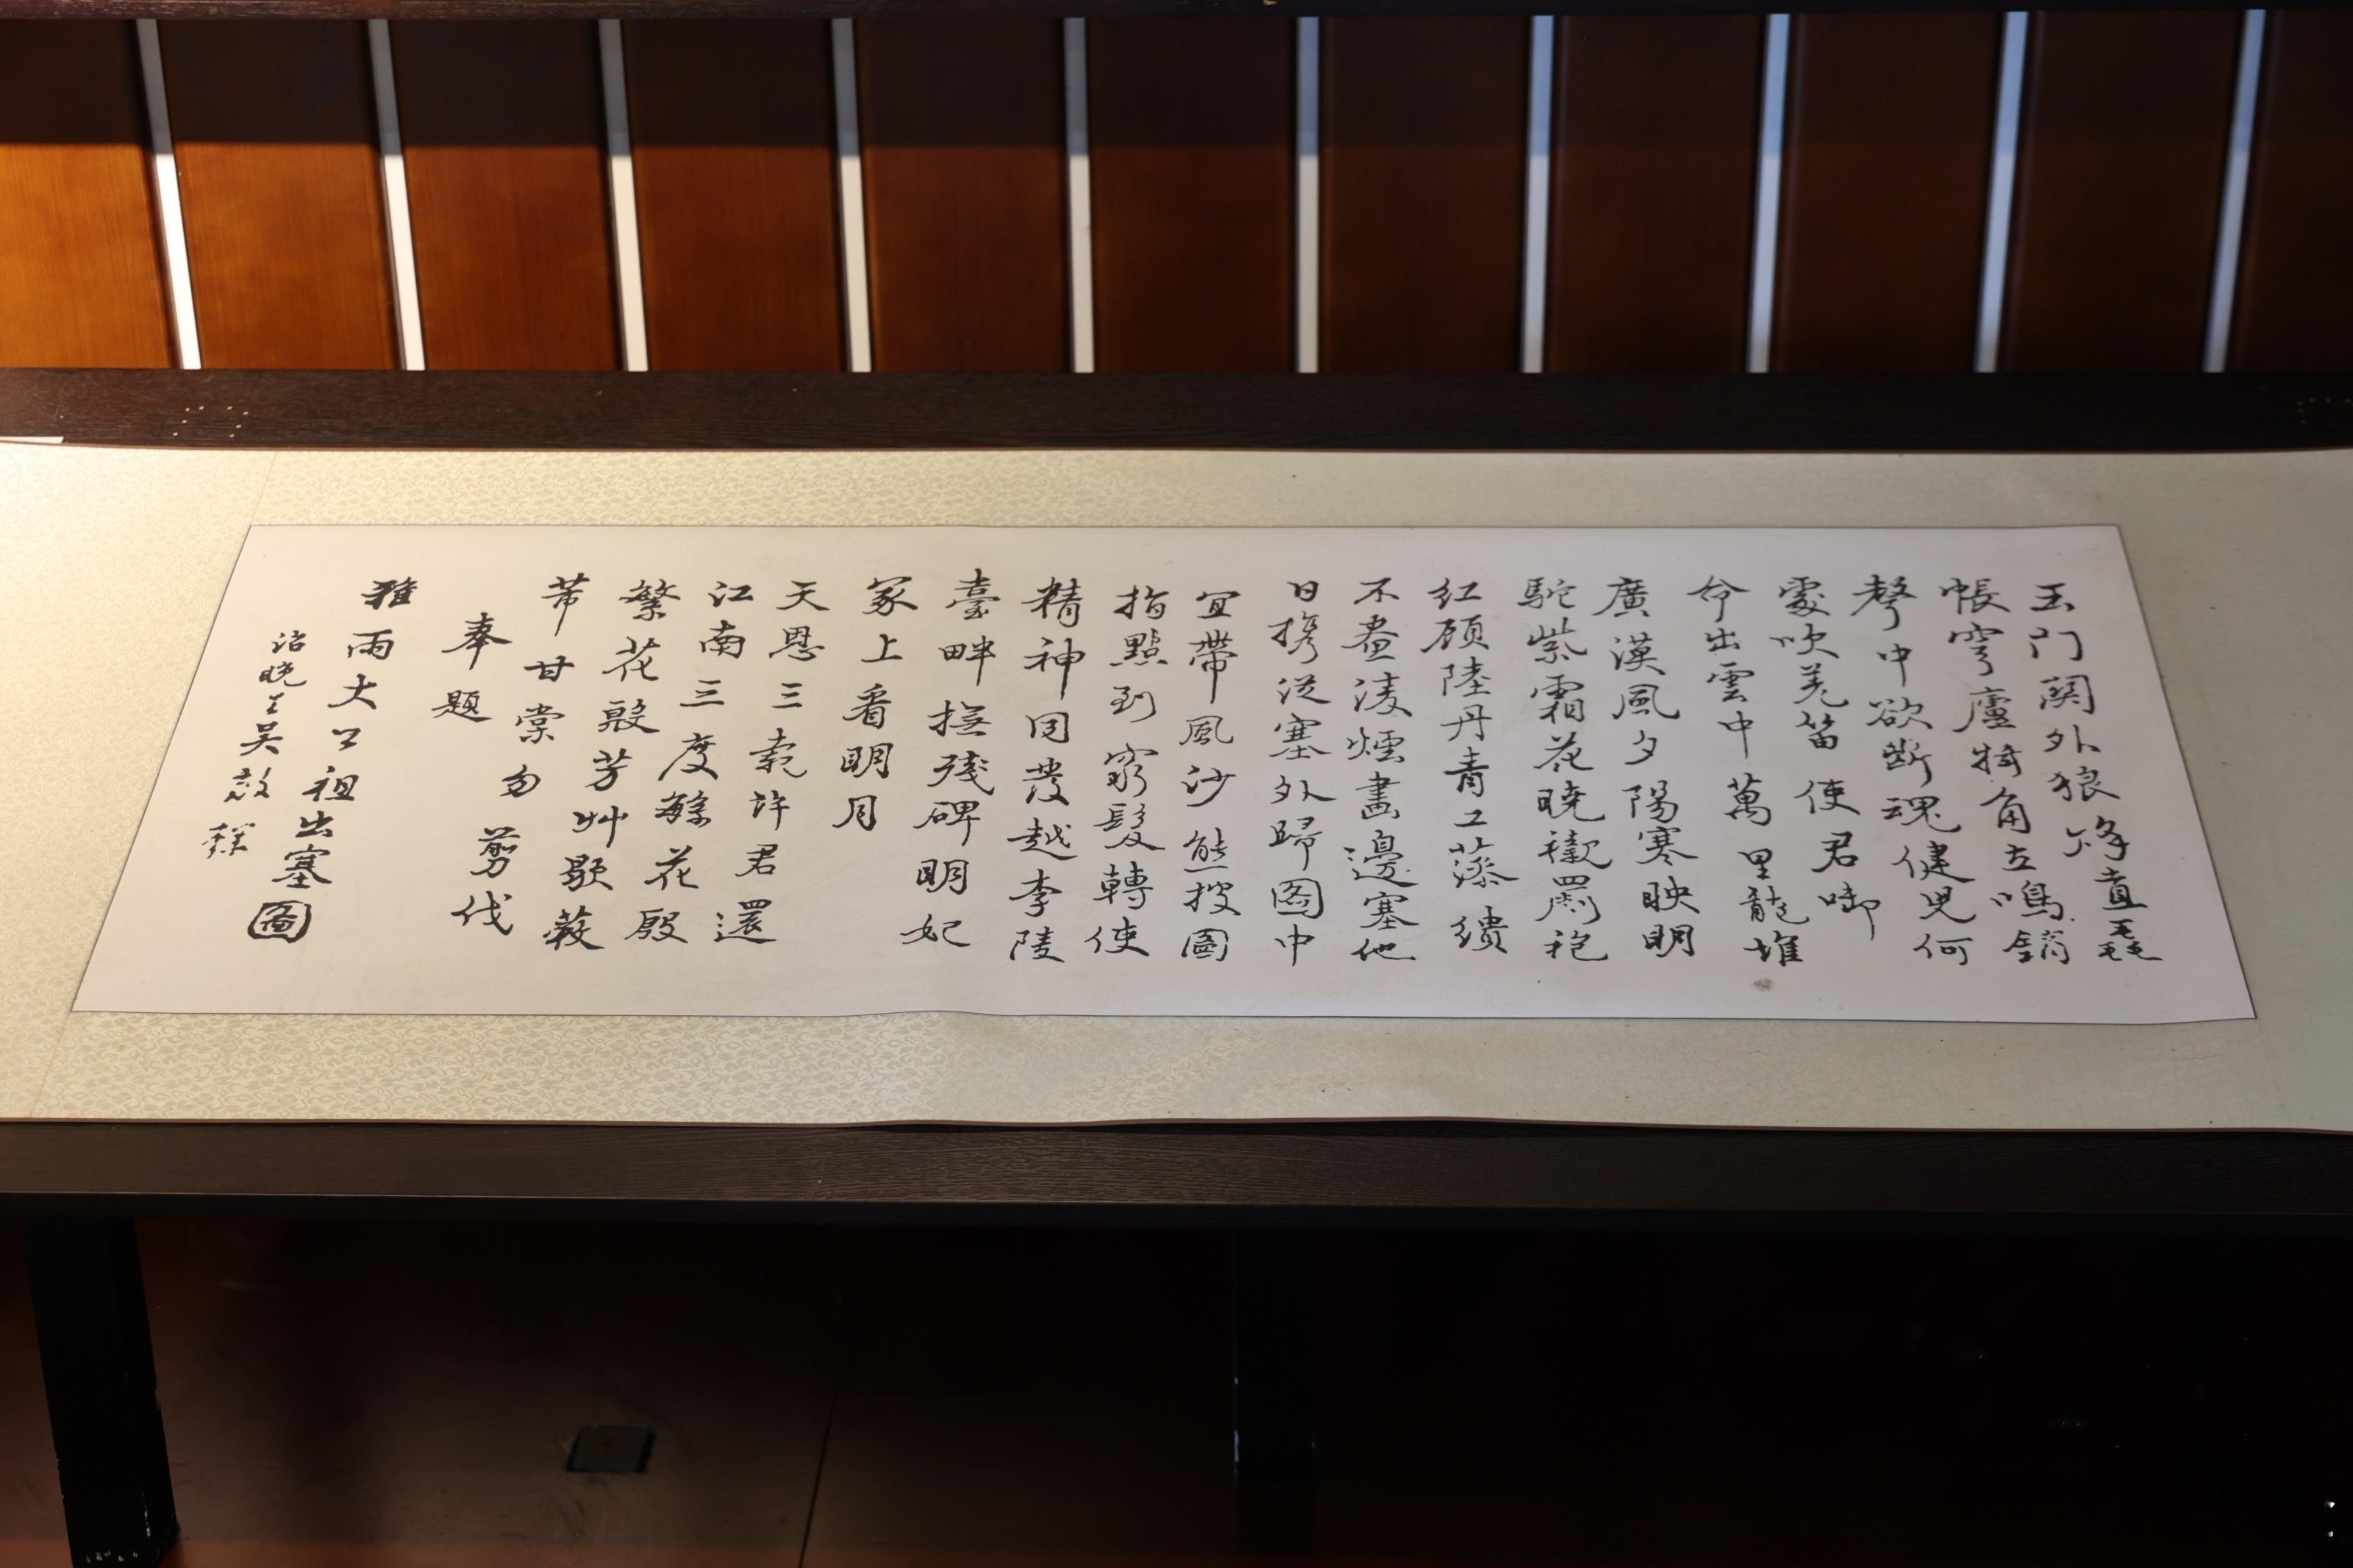 玉门関外狼烽直毳
帳穹廬犄角左鳴銷
聲中欲斷魂健児何
處吹羌笛使君啣
命出雲中萬里龍堆
廣漠風夕陽寒映明
駝紫霜花曉襯罽袍
紅顧陸丹青工藻繢
不盡淩煙畫邊塞他
日携従塞外歸图中
宜帶風沙態披圖
指點到窮髮轉使
精神同發越李陵
臺畔撫殘碑明妃
冢上看明月
天恩三素許君還
江南三度餘花殷
繁花殷芳艸歇蔽
芾甘棠勿剪伐
奉題
雅雨大公祖出塞圖
吴敬